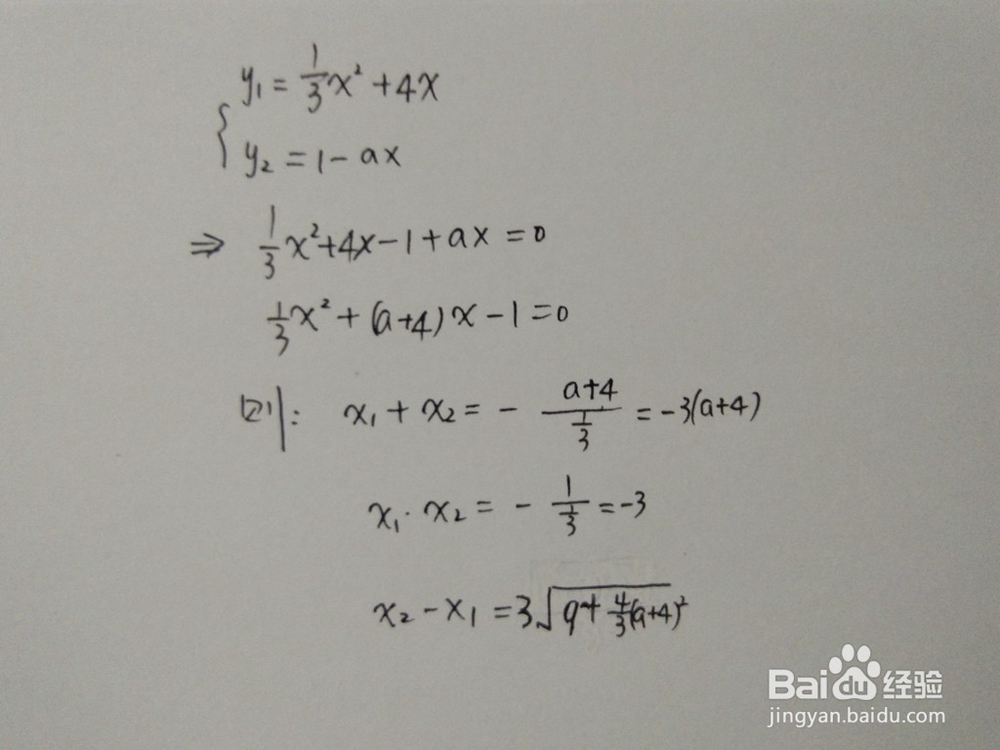 y₁ = 1/3 x² + 4x
y₂ = 1 - ax
⇒ 1/3 x² + 4x - 1 + ax = 0
1/3 x² + (a+4) x - 1 = 0
则: x₁ + x₂ = - (a+4)/(1/3) = -3(a+4)
x₁ · x₂ = - 1/(1/3) = -3
x₂ - x₁ = 3√(9 + 4/3 (a+4)²)
Baidu 经验
jingyan.baidu.com